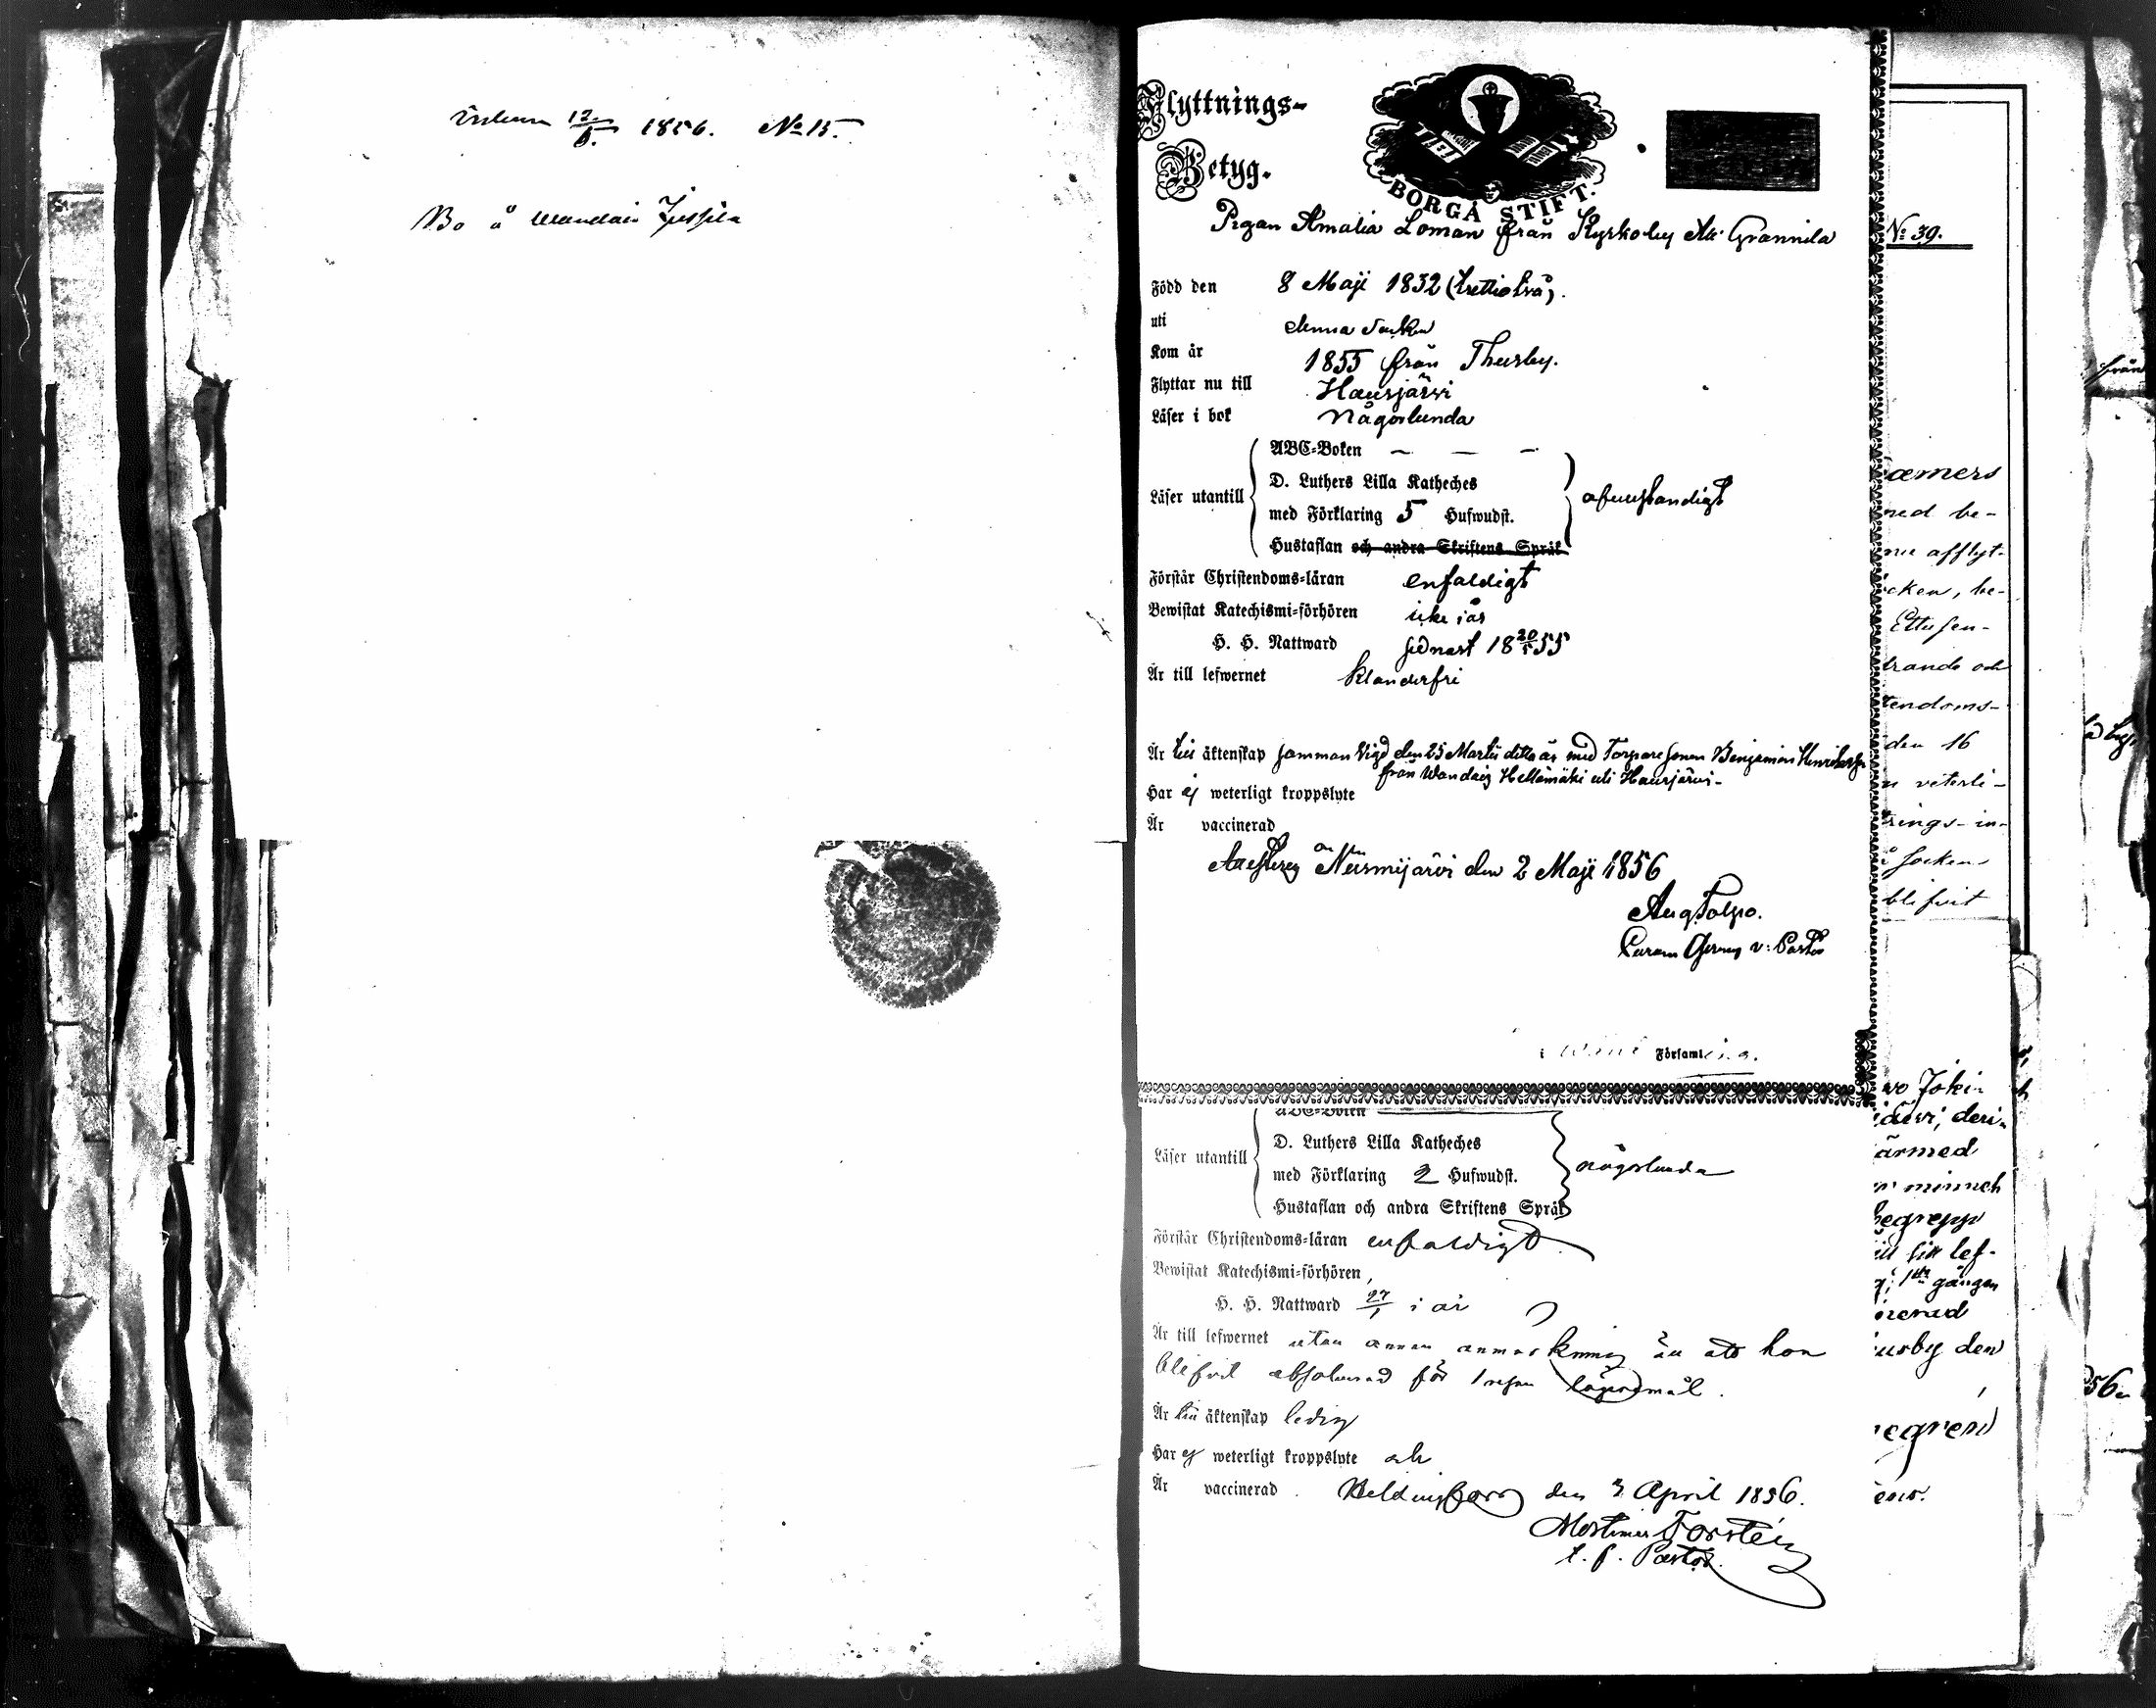 12/5. 1856. No 15.
Bo å Wandais Jussila
Flyttnings-
Betyg.
BORGÅ STIFT.
Pigan Amalia Loman från Kyrkoby Ali Grannila
Född den 8 Maji 1832 (trettiotvå).
uti denna Socken
Kom år 1855 från Thusby.
Flyttar nu till Hausjärvi
Läser i bok någorlunda
ABC-Boken — — —
Läser utantill
D. Luthers Lilla Katheches
med Förklaring 5 Hufwudst.
Hustaflan och andra Skriftens Språk
Förstår Christendoms-läran enfaldigt
Bewistat Katechismi-förhören icke i år
H. H. Nattward sednast 18 20/5 55
Är till lefwernet klanderfri
Är till äktenskap sammanvigd den 25 Martii detta år med Torparesonen Benjamin
från Wandais Hellamäki uti Hausjärvi.
Har ej weterligt kroppslyte
Är vaccinerad
Nurmijärvi den 2 Maji 1856
Aug
v: Pastor
i Församl
ABC-Boken
Läser utantill
D. Luthers Lilla Katheches
med Förklaring 2 Hufwudst.
någorlunda
Hustaflan och andra Skriftens Språk
Förstår Christendoms-läran enfaldigt
Bewistat Katechismi-förhören
H. H. Nattward 27/1 i år
Är till lefwernet utan annan anmärkning än att hon
blifvit absolverad för lägersmål.
Är till äktenskap ledig
Har ej weterligt kroppslyte och
Är vaccinerad. Helsingfors den 3 April 1856.
Forstén
t. f. Pastor.
No 39.
ned be-
nu afflyt-
cken, be-
Ettusen-
trande och
tendoms-
den 16
n veterli-
rings-in-
Socken
blifvit
från
vo Joki-
järvi, deri-
ärmed
begrepp
till sitt lef-
1sta gången
usby den
56.